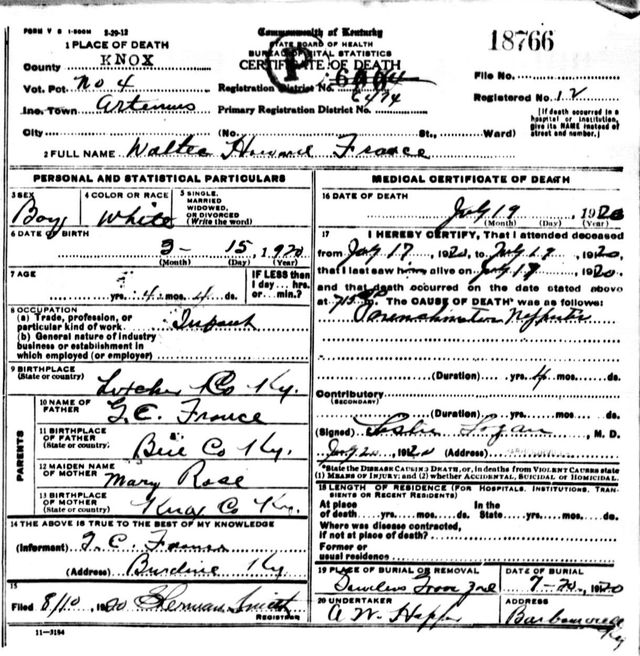 FORM V S 1-500M 2-29-12
Commonwealth of Kentucky
STATE BOARD OF HEALTH
BUREAU OF VITAL STATISTICS
CERTIFICATE OF DEATH
18766
1 PLACE OF DEATH
County KNOX
Vot. Pct. No 4
Inc. Town Artemus
City (No. St., Ward)
Registration District No.
Primary Registration District No. 6474
File No.
Registered No. 12
[If death occurred in a hospital or institution, give its NAME instead of street and number.]
2 FULL NAME Walter Howard France
PERSONAL AND STATISTICAL PARTICULARS
3 SEX Boy
4 COLOR OR RACE White
5 SINGLE, MARRIED WIDOWED, OR DIVORCED (Write the word)
6 DATE OF BIRTH 3- 15, 1920
(Month) (Day) (Year)
7 AGE
yrs. 4 mos. 4 ds.
IF LESS than 1 day... hrs. or min.?
8 OCCUPATION
(a) Trade, profession, or particular kind of work Infant
(b) General nature of industry business or establishment in which employed (or employer)
9 BIRTHPLACE (State or country) Letcher Co Ky.
PARENTS
10 NAME OF FATHER G. C. France
11 BIRTHPLACE OF FATHER (State or country) Co Ky.
12 MAIDEN NAME OF MOTHER Mary Rose
13 BIRTHPLACE OF MOTHER (State or country) Knox Co Ky.
14 THE ABOVE IS TRUE TO THE BEST OF MY KNOWLEDGE
(Informant) G. C. France
(Address) Burdine Ky
15
Filed 8/10, 1920 Sherman Smith
REGISTRAR
11-3184
MEDICAL CERTIFICATE OF DEATH
16 DATE OF DEATH July 19, 1920
(Month) (Day) (Year)
17 I HEREBY CERTIFY, That I attended deceased
from July 17, 1920, to July 19, 1920,
that I last saw him alive on July 19, 1920.
and that death occurred on the date stated above
at m. The CAUSE OF DEATH* was as follows:
(Duration) yrs. 4 mos. ds.
Contributory (SECONDARY)
(Duration) yrs. mos. ds.
(Signed) Logan, M. D.
1920 (Address)
*State the DISEASE CAUSING DEATH, or, in deaths from VIOLENT CAUSES state (1) MEANS OF INJURY; and (2) whether ACCIDENTAL, SUICIDAL or HOMICIDAL.
18 LENGTH OF RESIDENCE (FOR HOSPITALS, INSTITUTIONS, TRANSIENTS OR RECENT RESIDENTS)
At place of death yrs. mos. ds.
In the State yrs. mos. ds.
Where was disease contracted, if not at place of death?
Former or usual residence
19 PLACE OF BURIAL OR REMOVAL
DATE OF BURIAL 7-20, 1920
20 UNDERTAKER A. W. Hopper
ADDRESS Barbourville Ky